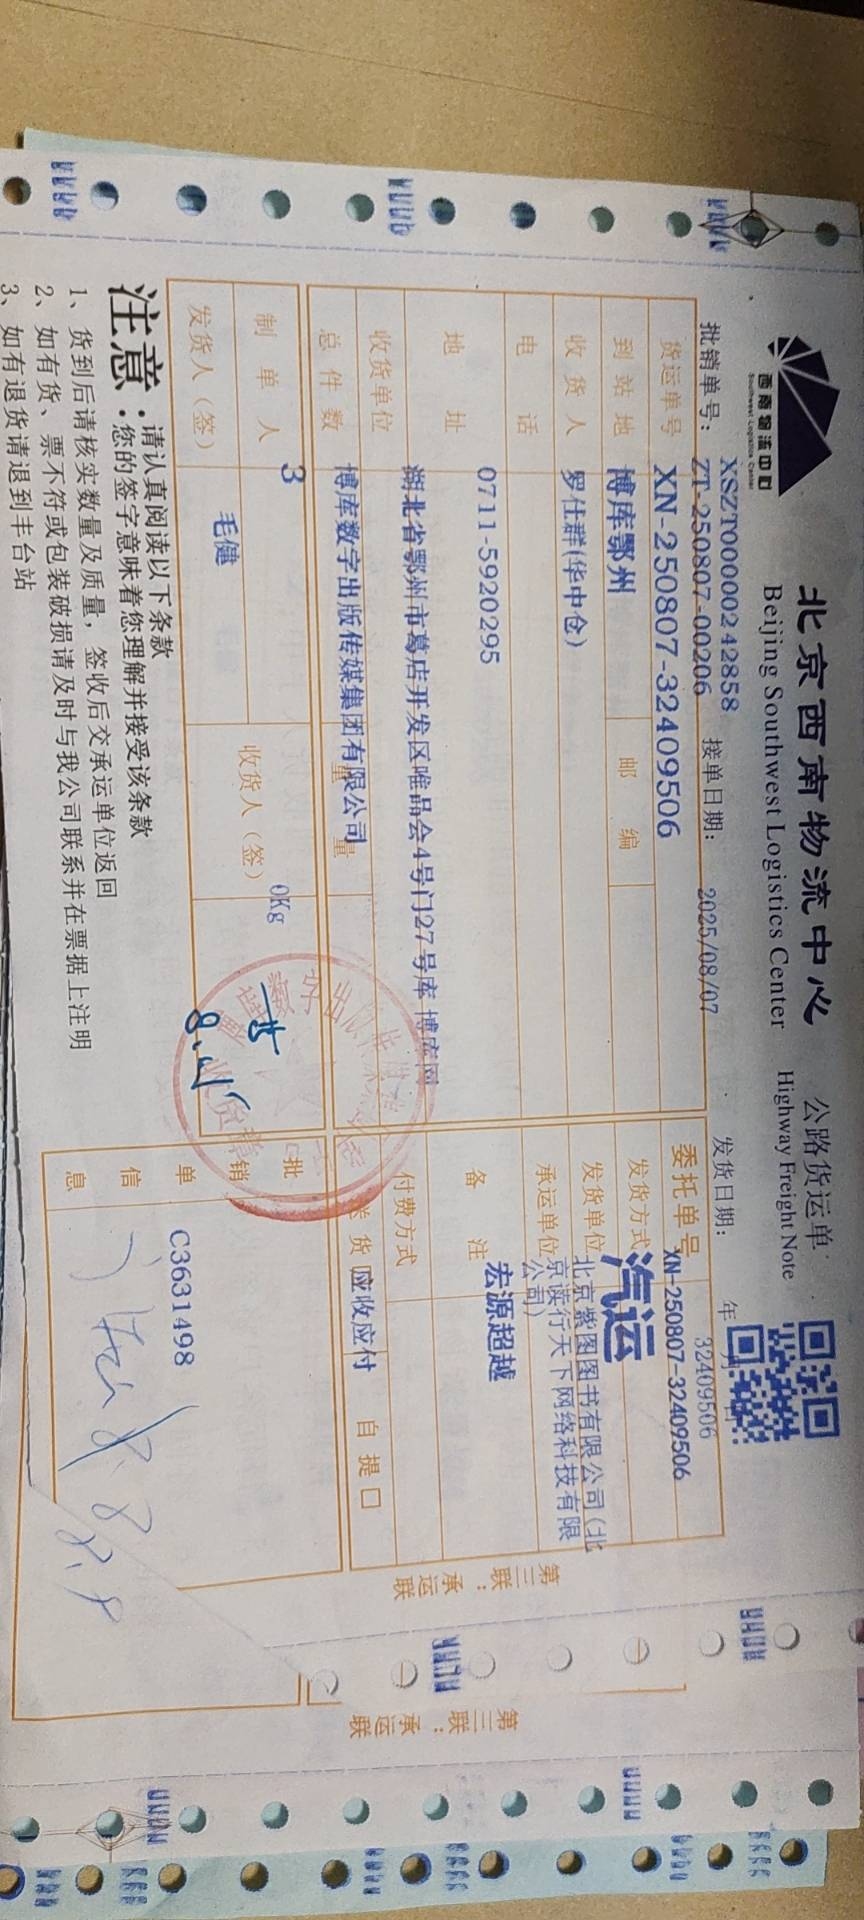 西南物流中心
Southwest Logistics Center
北京西南物流中心 公路货运单
Beijing Southwest Logistics Center Highway Freight Note
XSZT0000242858
批销单号: ZT-250807-00206 接单日期: 2025/08/07 发货日期: 年 月
32409506
货运单号 XN-250807-32409506 委托单号 XN-250807-32409506
到站地 博库鄂州 邮编 发货方式 汽运
收货人 罗仕群(华中仓) 发货单位 北京紫图图书有限公司(北京读行天下网络科技有限公司)
电话 0711-5920295 承运单位
地址 湖北省鄂州市葛店开发区唯品会4号门27号库 博库网 备注 宏源超越
收货单位 博库数字出版传媒集团有限公司 付费方式
总件数 3 量 0Kg 送货 应收应付 自提口
制单人 毛健 收货人(签)
发货人(签)
8.15
批销单信息 C3631498
8.8
注意: 请认真阅读以下条款
您的签字意味着您理解并接受该条款
1、货到后请核实数量及质量, 签收后交承运单位返回
2、如有货、票不符或包装破损请及时与我公司联系并在票据上注明
3、如有退货请退到丰台站
第三联: 承运联
第三联: 承运联